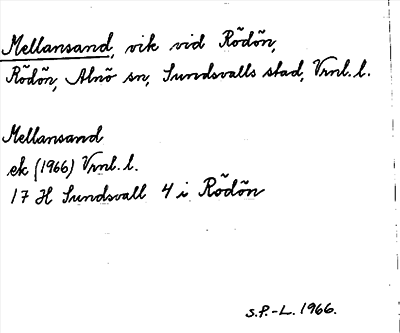 Mellansand, vik vid Rödön,
Rödön, Alnö sn, Sundsvalls stad, Vrnl. l.
Mellansand
ek (1966) Vrnl. l.
17 H Sundsvall 4 i Rödön
S.P.-L. 1966.